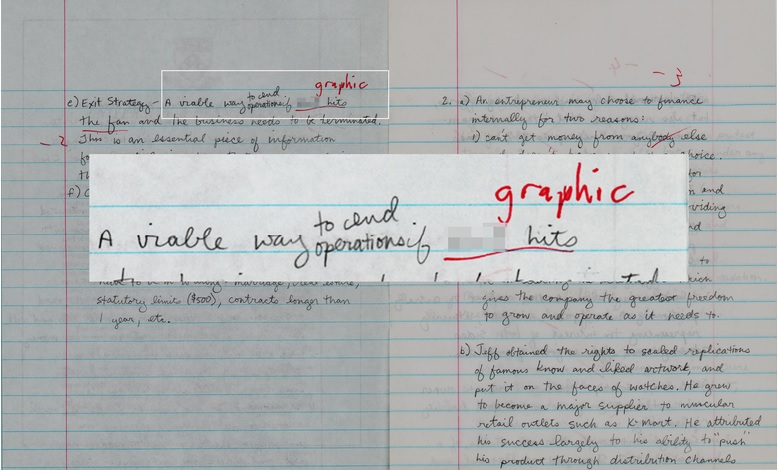 c) Exit Strategy - A viable way to end operations if hits
graphic
the fan and the business needs to be terminated.
- 2 This is an essential piece of information
f)
A viable way to end operations if hits
graphic
statutory limits ($500), contracts longer than
1 year, etc.
- 3
2. a) An entrepreneur may choose to finance
internally for two reasons:
1) can't get money from anybody else
choice.
for
and
viding
nd
to
gives the company the greatest freedom
to grow and operate as it needs to.
b) Jeff obtained the rights to scaled replications
of famous know and liked artwork, and
put it on the faces of watches. He grew
to become a major supplier to muscular
retail outlets such as K-mart. He attributed
his success largely to his ability to "push"
his product through distribution channels